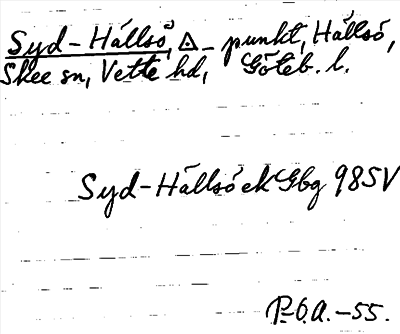 Syd-Hällsö, △-punkt, Hällsö,
Skee sn, Vette hd, Göteb. l.
Syd-Hällsö ek Gbg 985V
P-Ö.A.-55.